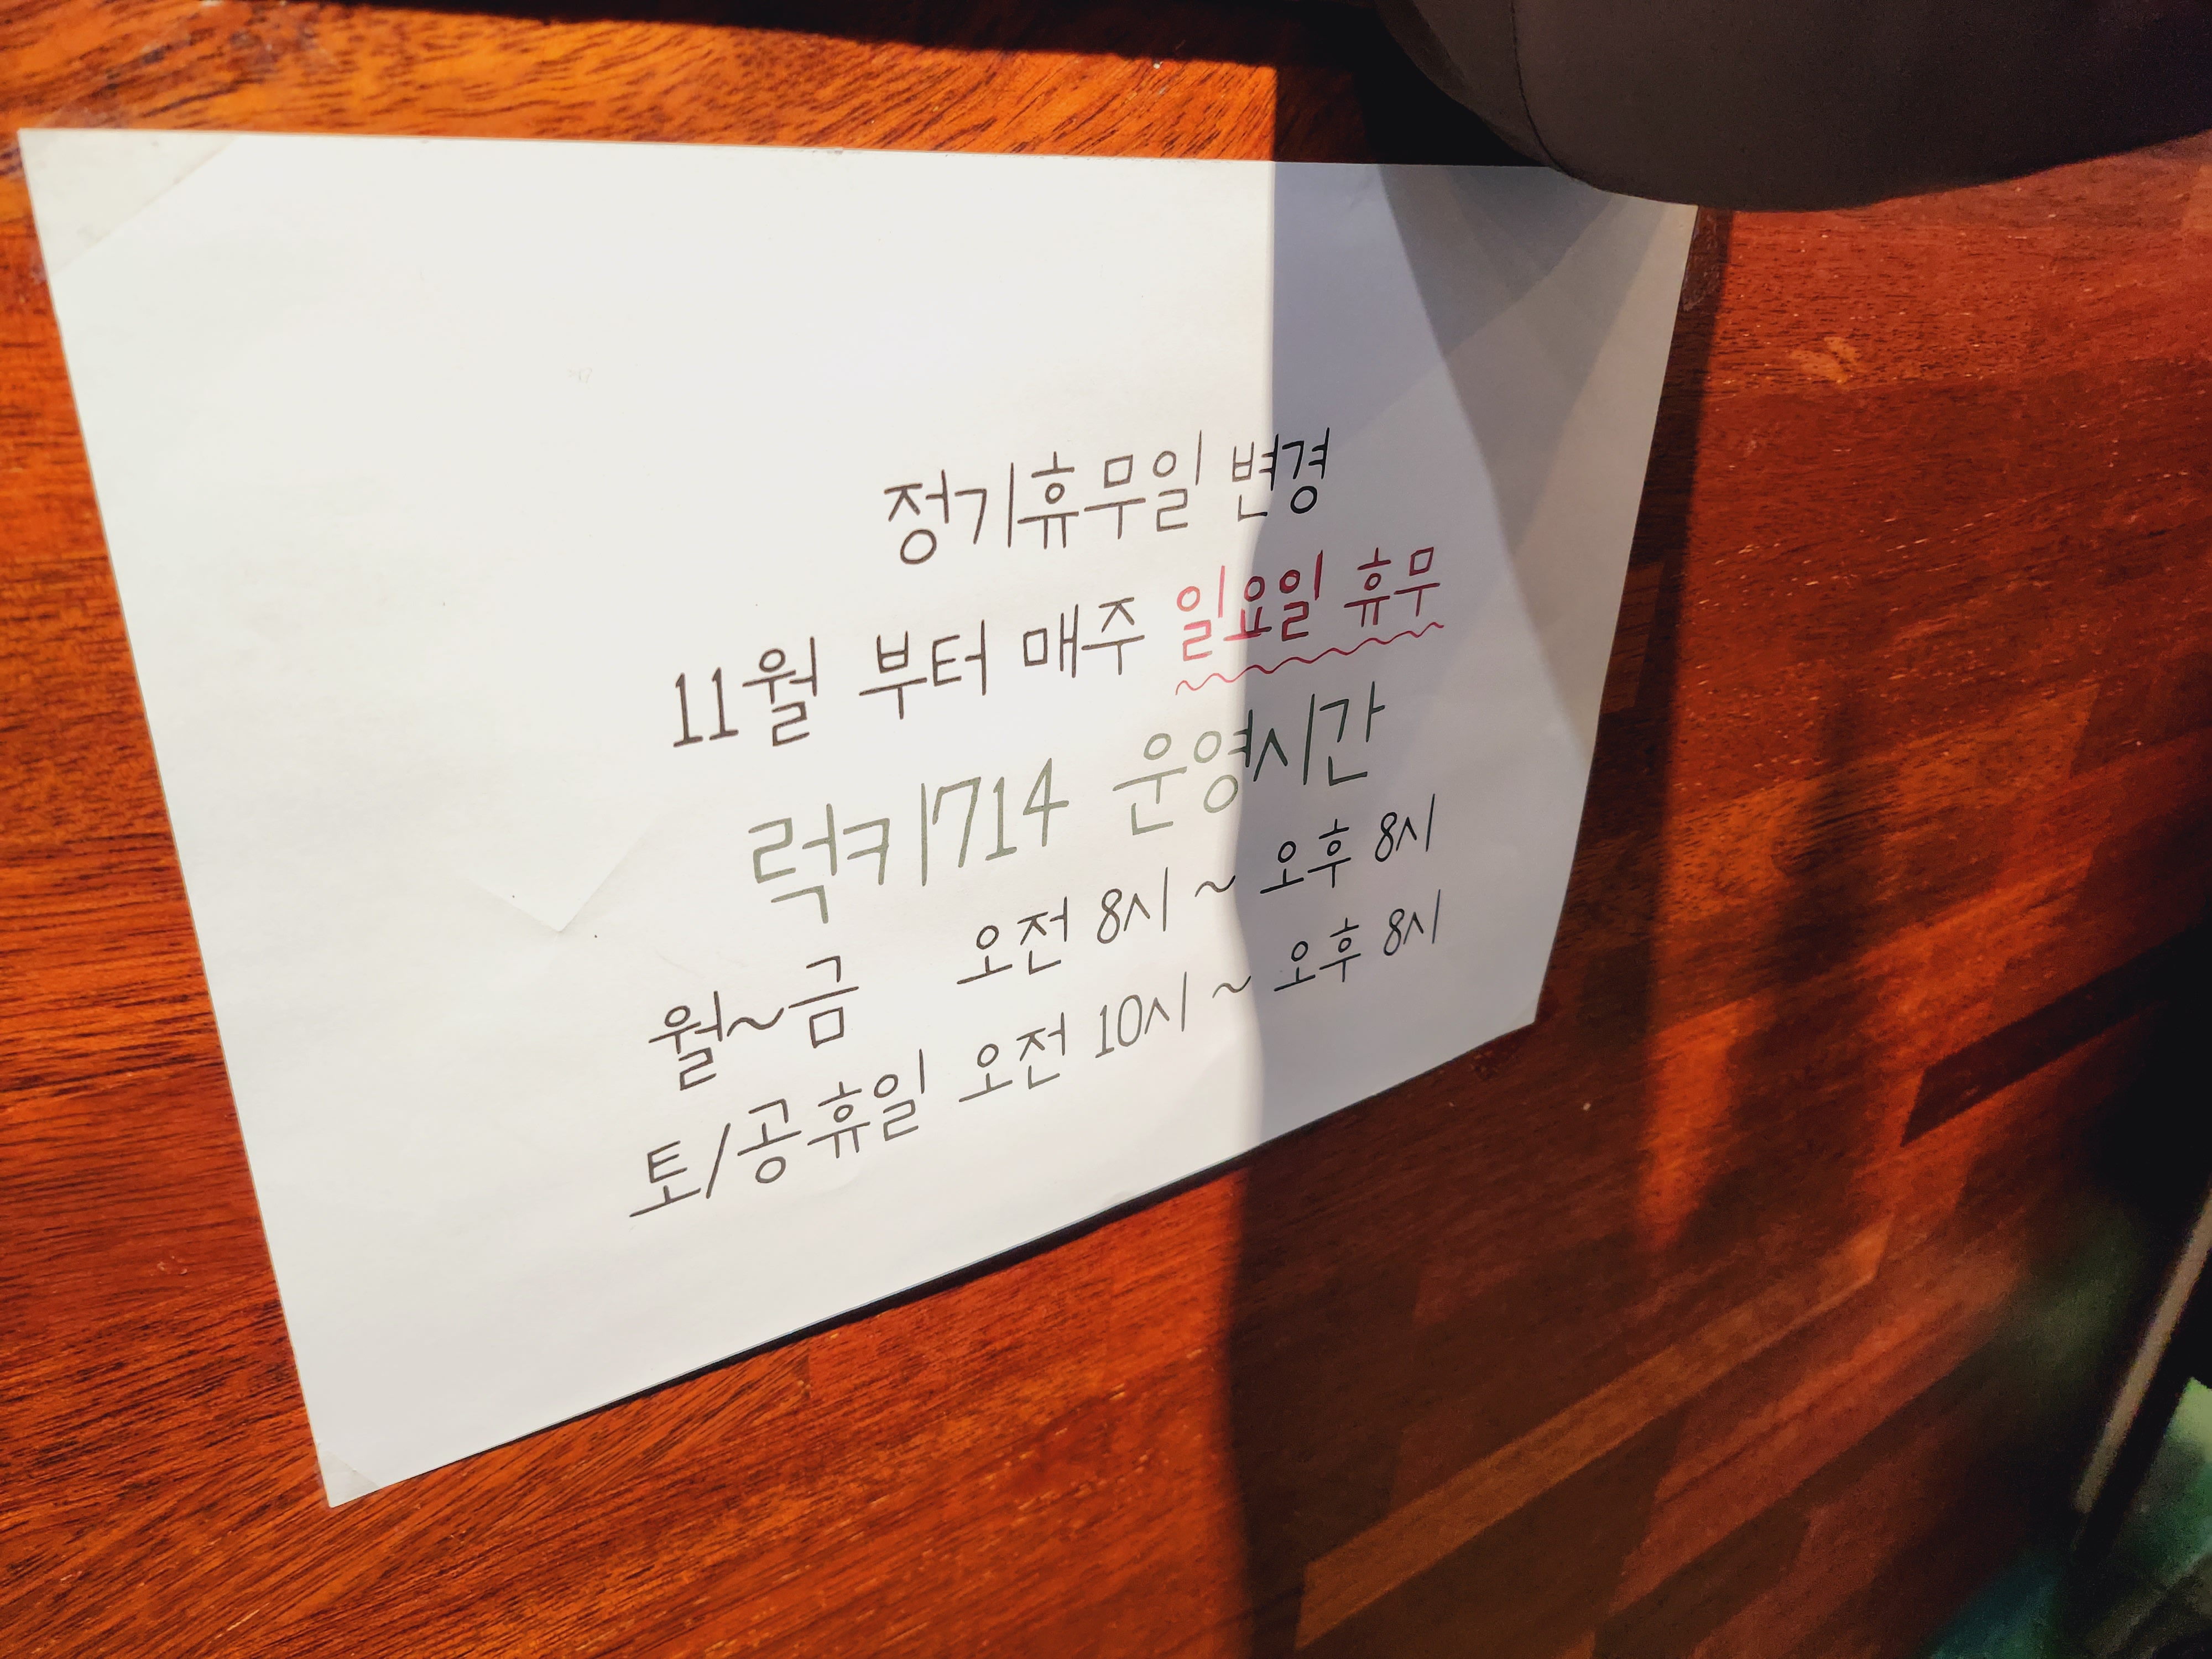 정기휴무일 변경
11월 부터 매주 일요일 휴무
럭키714 운영시간
월~금 오전 8시 ~ 오후 8시
토/공휴일 오전 10시 ~ 오후 8시